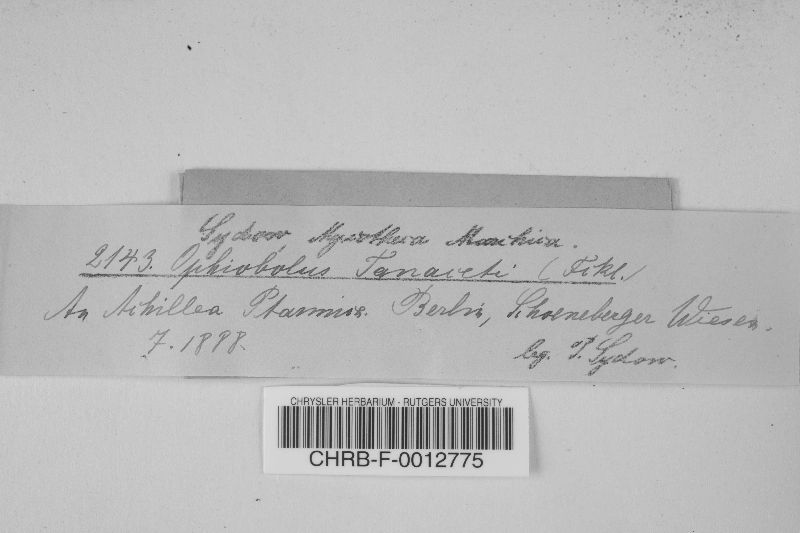 Sydow Mycotheca Marchica.
2143. Ophiobolus Tanaceti (Fckl.)
An Achillea Ptarmica. Berlin, Schoeneberger Wiesen.
7. 1888.
leg. P. Sydow.
CHRYSLER HERBARIUM - RUTGERS UNIVERSITY
CHRB-F-0012775